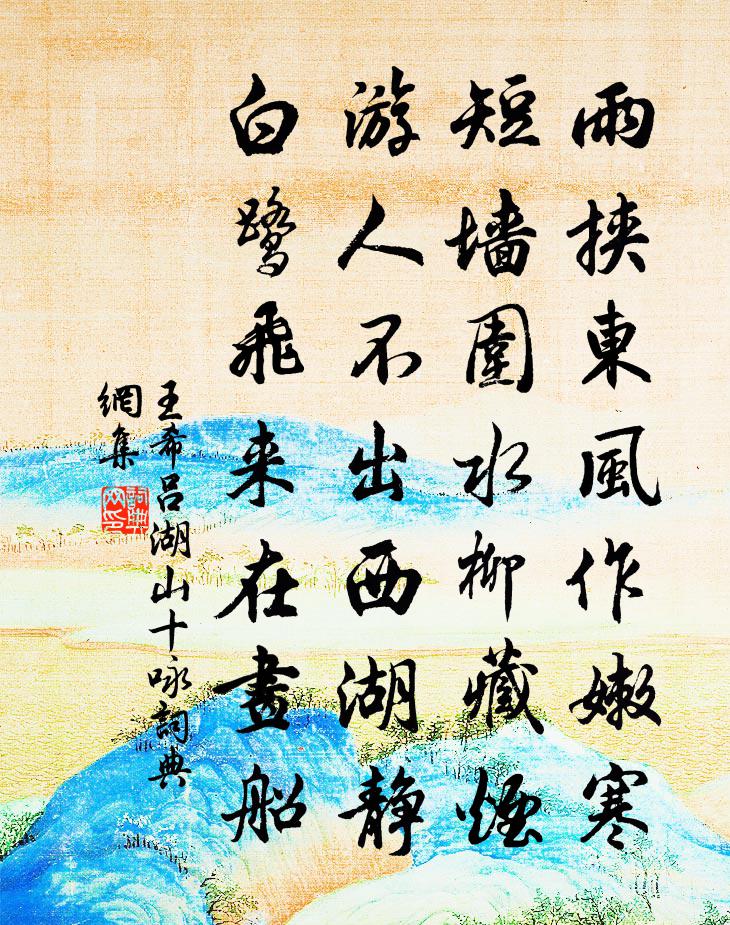 雨挾東風作嫩寒
短墻圍水柳藏煙
游人不出西湖静
白鷺飛来在畫船
王希吕湖山十咏詞典
網集
詞典網印